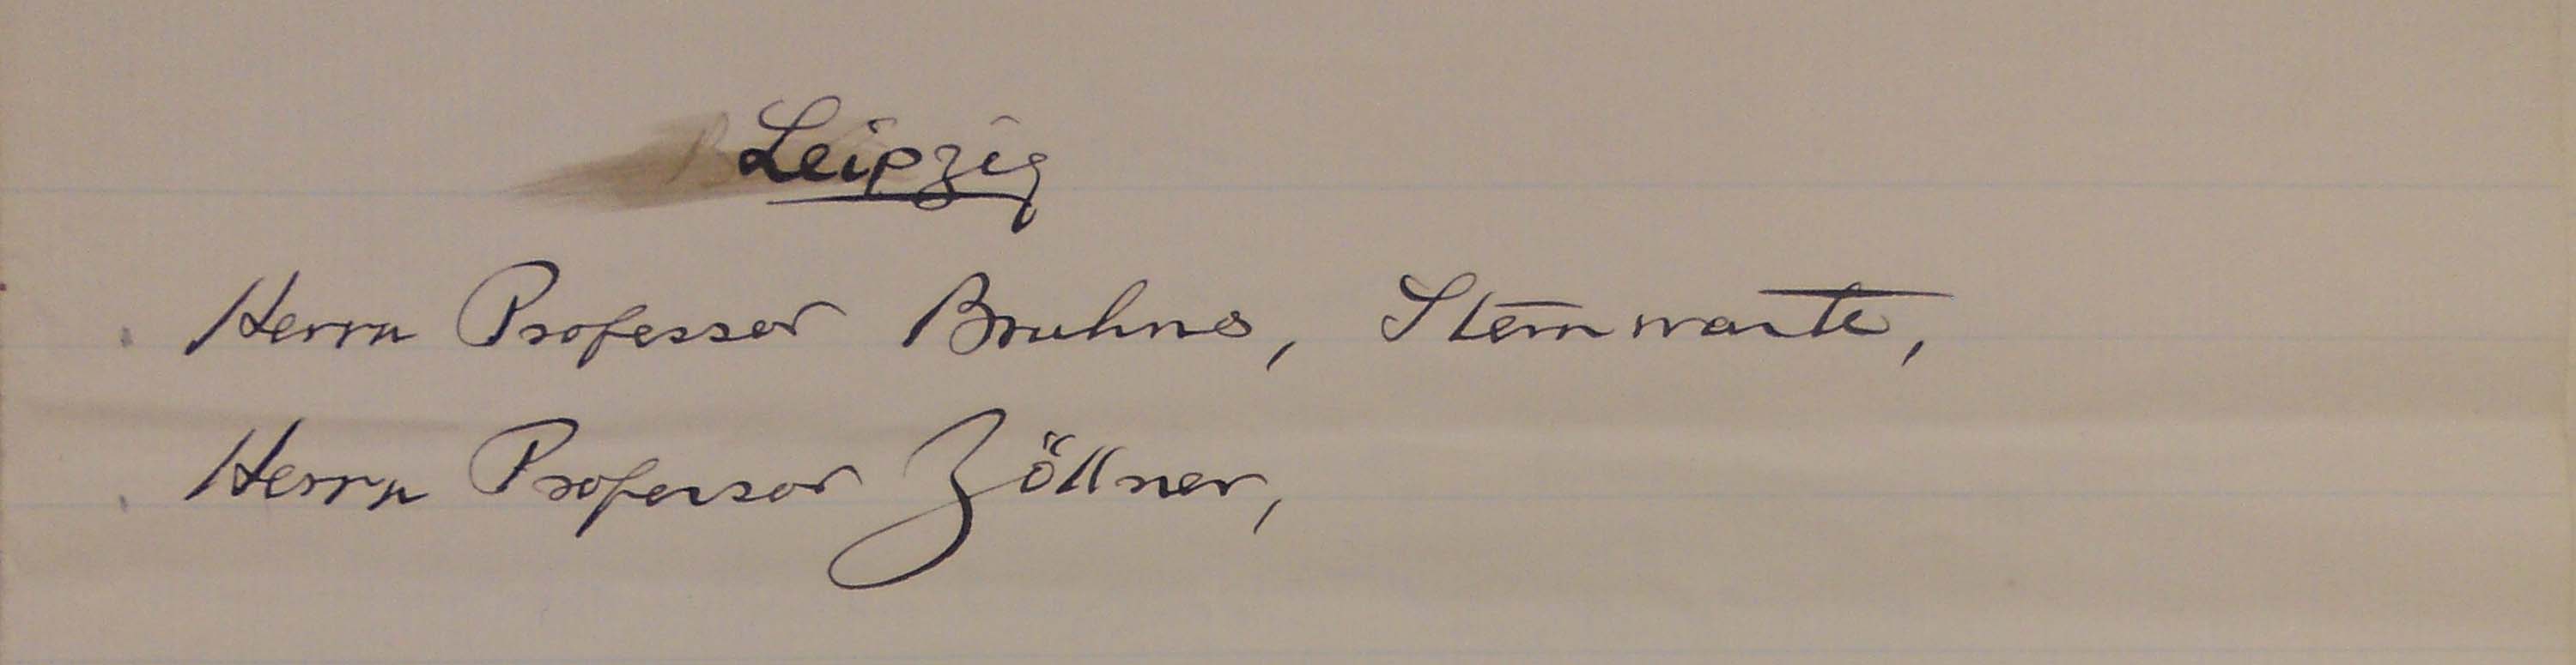 Leipzig
Herrn Professor Bruhns, Sternwarte,
Herrn Professor Zöllner,